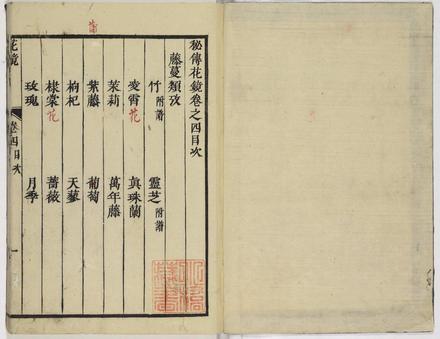 秘傳花鏡卷之四目次
藤蔓類攷
竹附譜 靈芝附譜
凌霄花 眞珠蘭
茉莉 萬年藤
紫藤 葡萄
枸杞 天蓼
棣棠花 薔薇
玫瑰 月季
花鏡 卷四目次 一